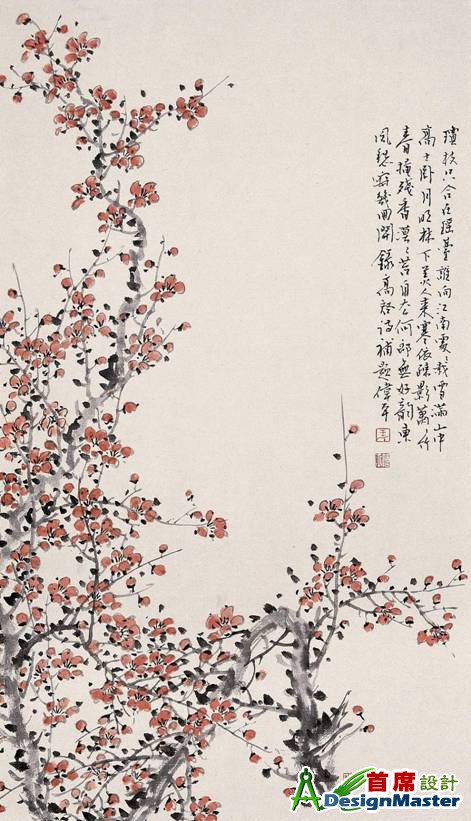 瓊枝只合在瑤臺誰向江南處〻栽雪滿山中
高士卧月明林下美人來寒依疏影蕭〻竹
春掩殘香漠〻苔自去何郎無好韵東
風愁寂幾回開錄高啓詩補題偉平
首席設計
DesignMaster